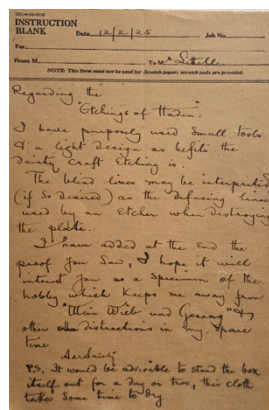 INSTRUCTION
BLANK
Date 12/2/25 Job No.
For
From M To Mr Littell
NOTE: This form must not be used for Scratch paper; scratch pads are provided.
Regarding the
"Etchings of Haden".
I have purposely used small tools
& a light design as befits the
dainty craft Etching is.
The blind lines may be interpreted
(if so desired) as the defacing lines
used by an Etcher when destroying
the plate.
I have added at the end the
proof you saw, I hope it will
interest you as a specimen of the
hobby which keeps me away from
"Wein Weib und Gesang" &
other distractions in my spare
time
P.S. It would be advisable to stand the box
itself out for a day or two, this cloth
takes some time to dry